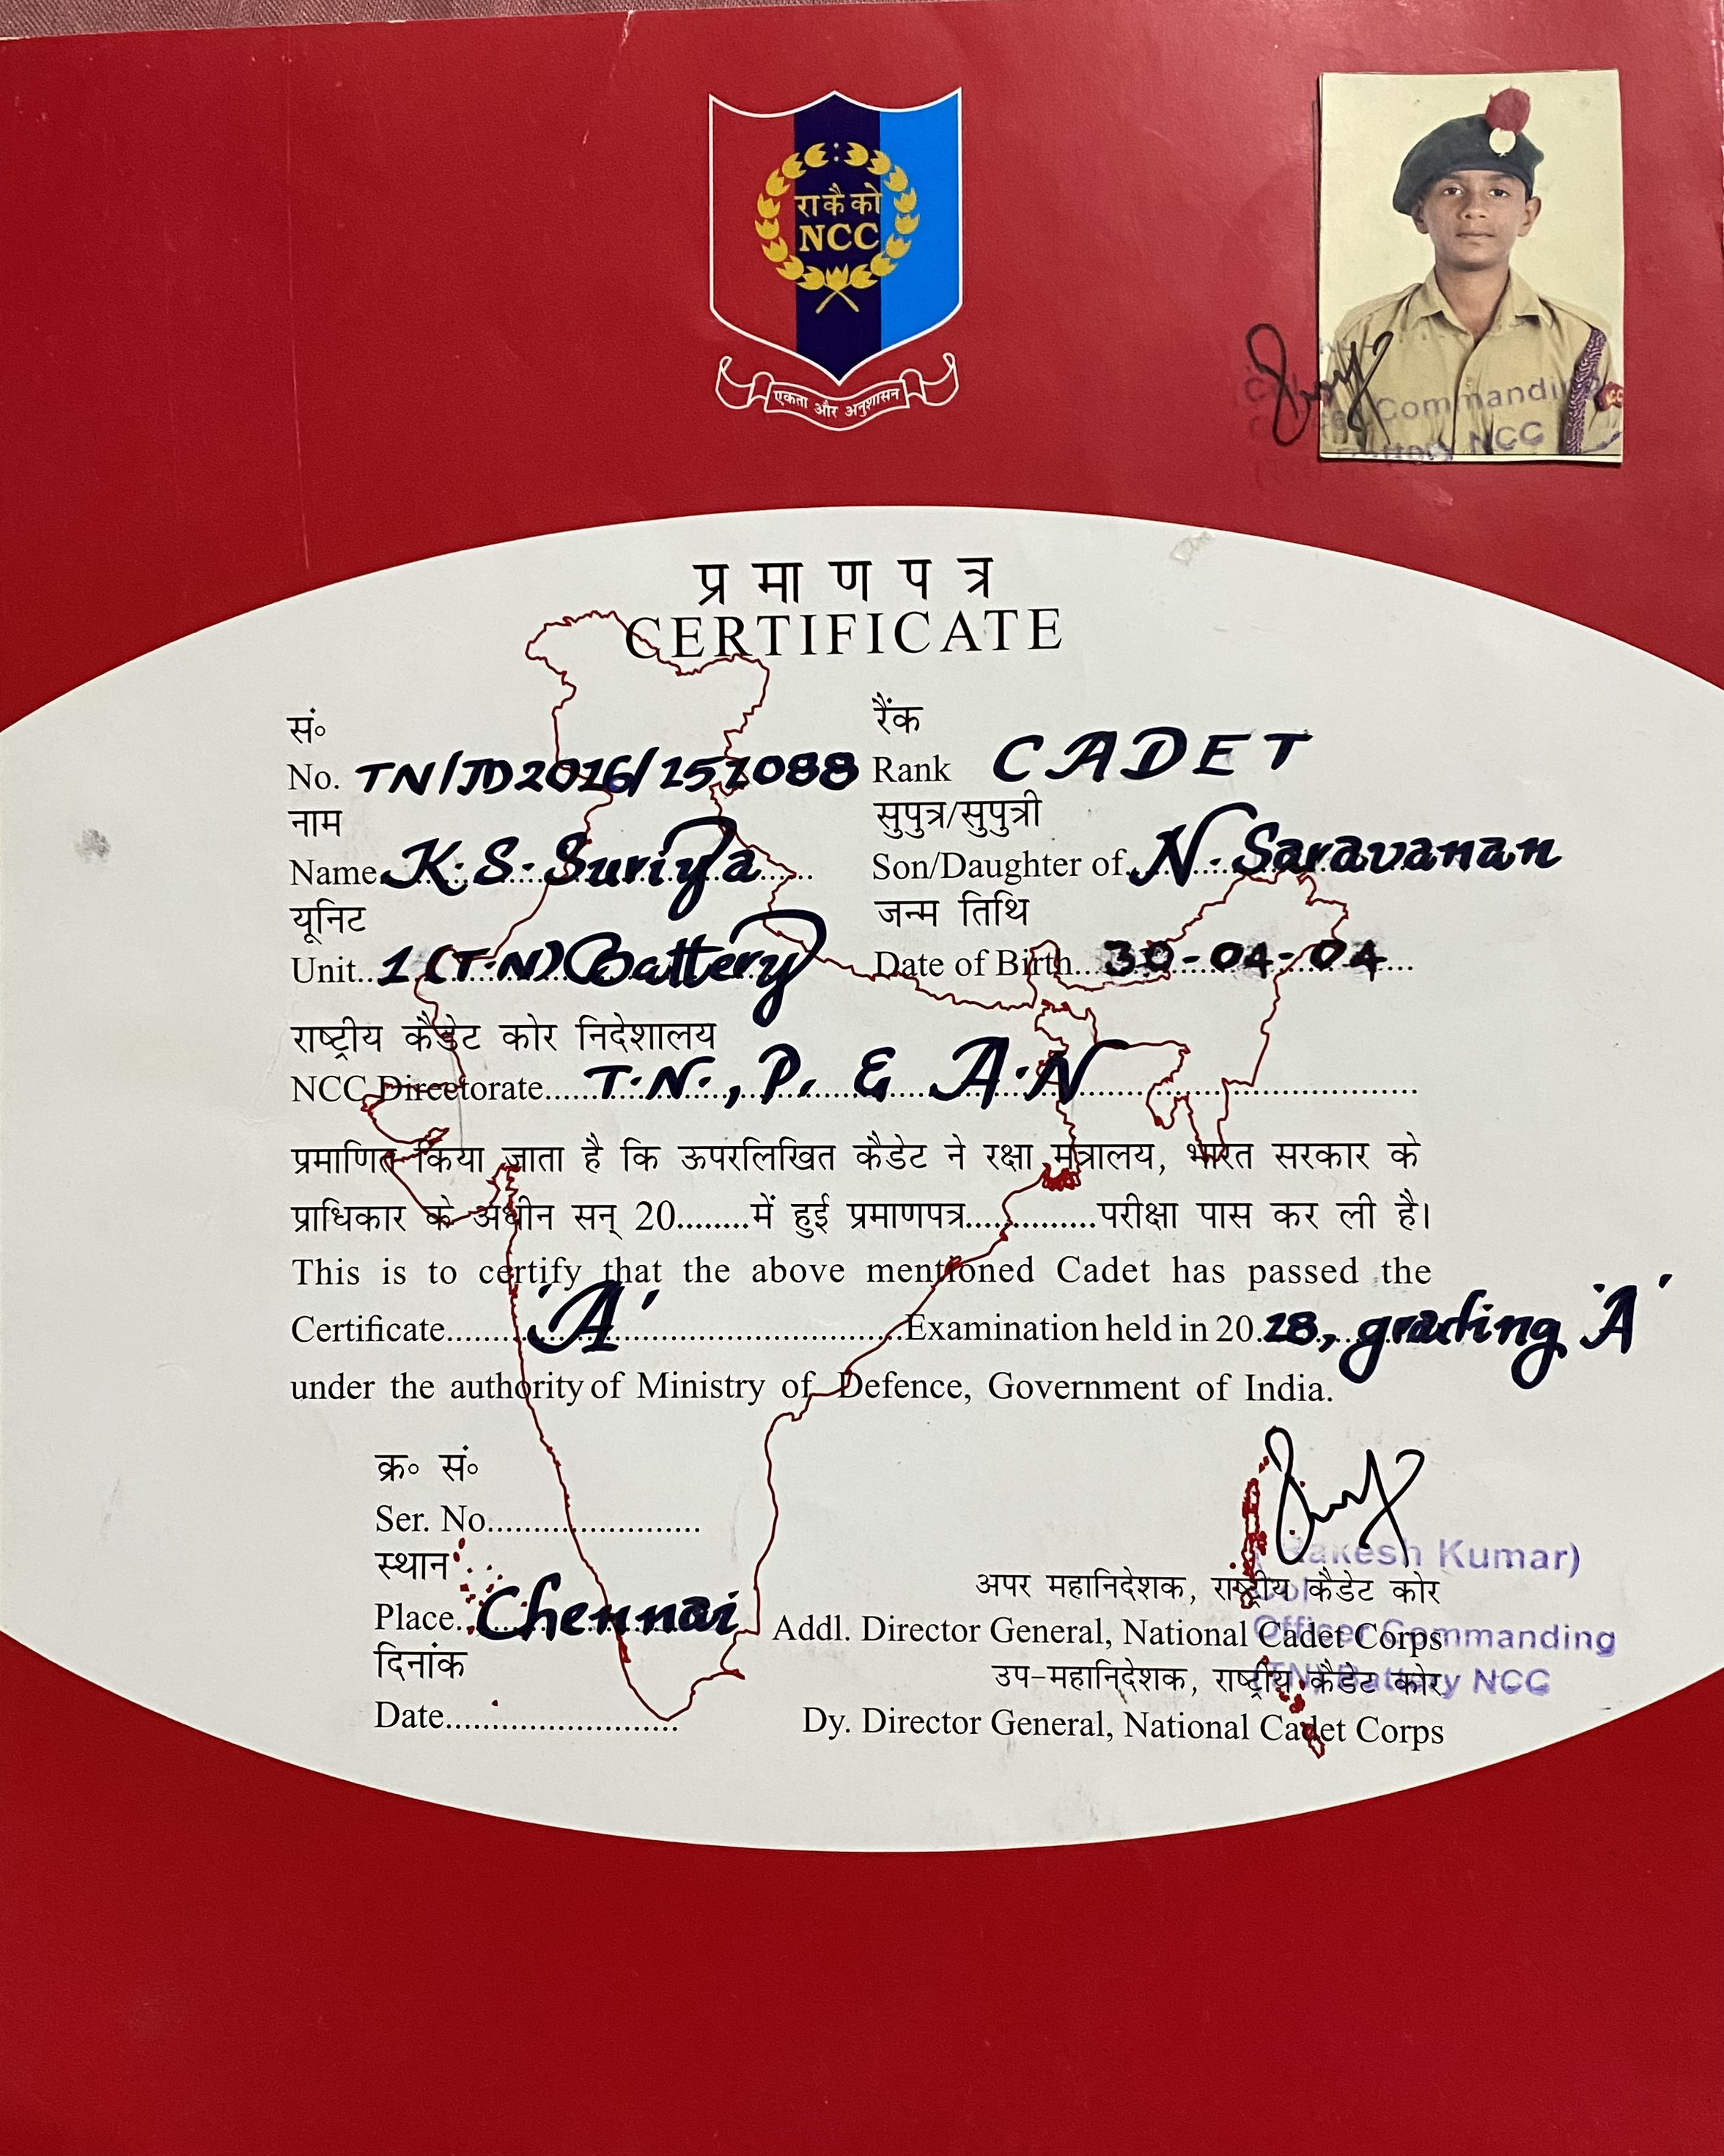 रा कै को
NCC
एकता और अनुशासन
Commanding
Battery NCC
प्रमाणपत्र
CERTIFICATE
सं०
No. TN/JD2016/151088
रैंक
Rank CADET
नाम
Name K.S.Suriya
सुपुत्र/सुपुत्री
Son/Daughter of N.Saravanan
यूनिट
Unit..1(T.N)Battery
जन्म तिथि
Date of Birth...30-04-04...
राष्ट्रीय कैडेट कोर निदेशालय
NCC Directorate......T.N., P. & A.N
प्रमाणित किया जाता है कि ऊपरलिखित कैडेट ने रक्षा मंत्रालय, भारत सरकार के
प्राधिकार के अधीन सन् 20........में हुई प्रमाणपत्र..............परीक्षा पास कर ली है।
This is to certify that the above mentioned Cadet has passed the
Certificate.........'A'.............................Examination held in 20.18, grading 'A'
under the authority of Ministry of Defence, Government of India.
क्र० सं०
Ser. No.......................
स्थान
Place..Chennai
दिनांक
Date.........................
Kumar)
अपर महानिदेशक, राष्ट्रीय कैडेट कोर
Addl. Director General, National Cadet Corps
Officer Commanding
उप-महानिदेशक, राष्ट्रीय कैडेट कोर
Battery NCC
Dy. Director General, National Cadet Corps